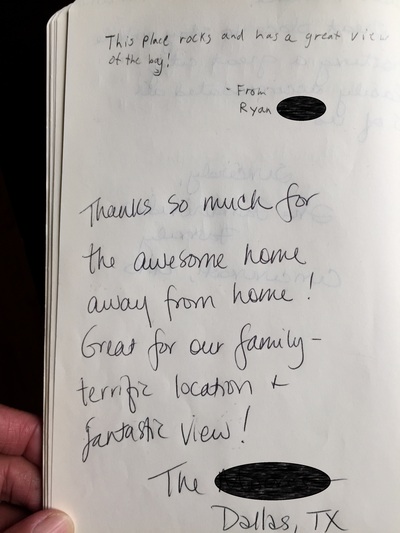 This place rocks and has a great view
of the bay!
- From
Ryan
Thanks so much for
the awesome home
away from home!
Great for our family-
terrific location &
fantastic view!
The
Dallas, TX